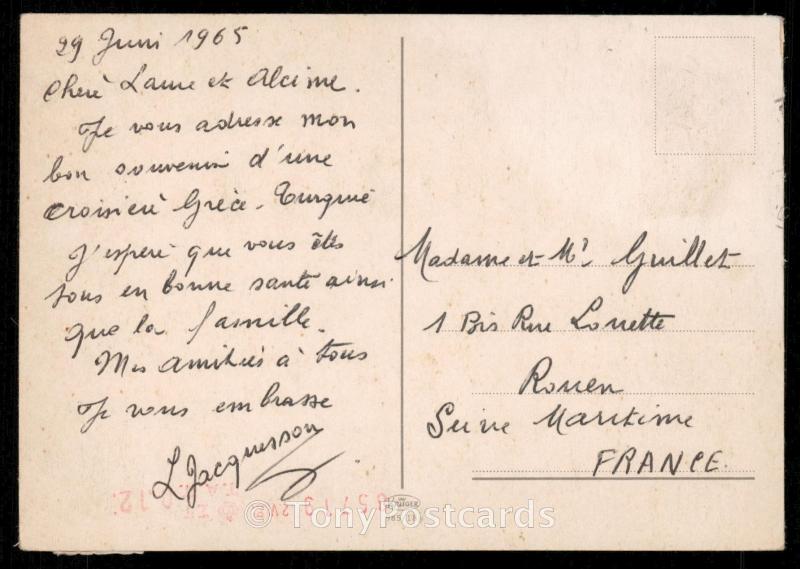 29 Juni 1965
Cherè Laure et Alcime.
Je vous adresse mon
bon souvenir d'une
croisierè Grèce. Turquié
J'esperè que vous êtes
tous en bonne santé ainsi
que la famille.
Mes amitiés à tous
Je vous embrasse
L Jacquesson
Madame et Mr Guillet
1 Bis Rue
Rouen
Seine Maritime
FRANCE.
© TonyPostcards